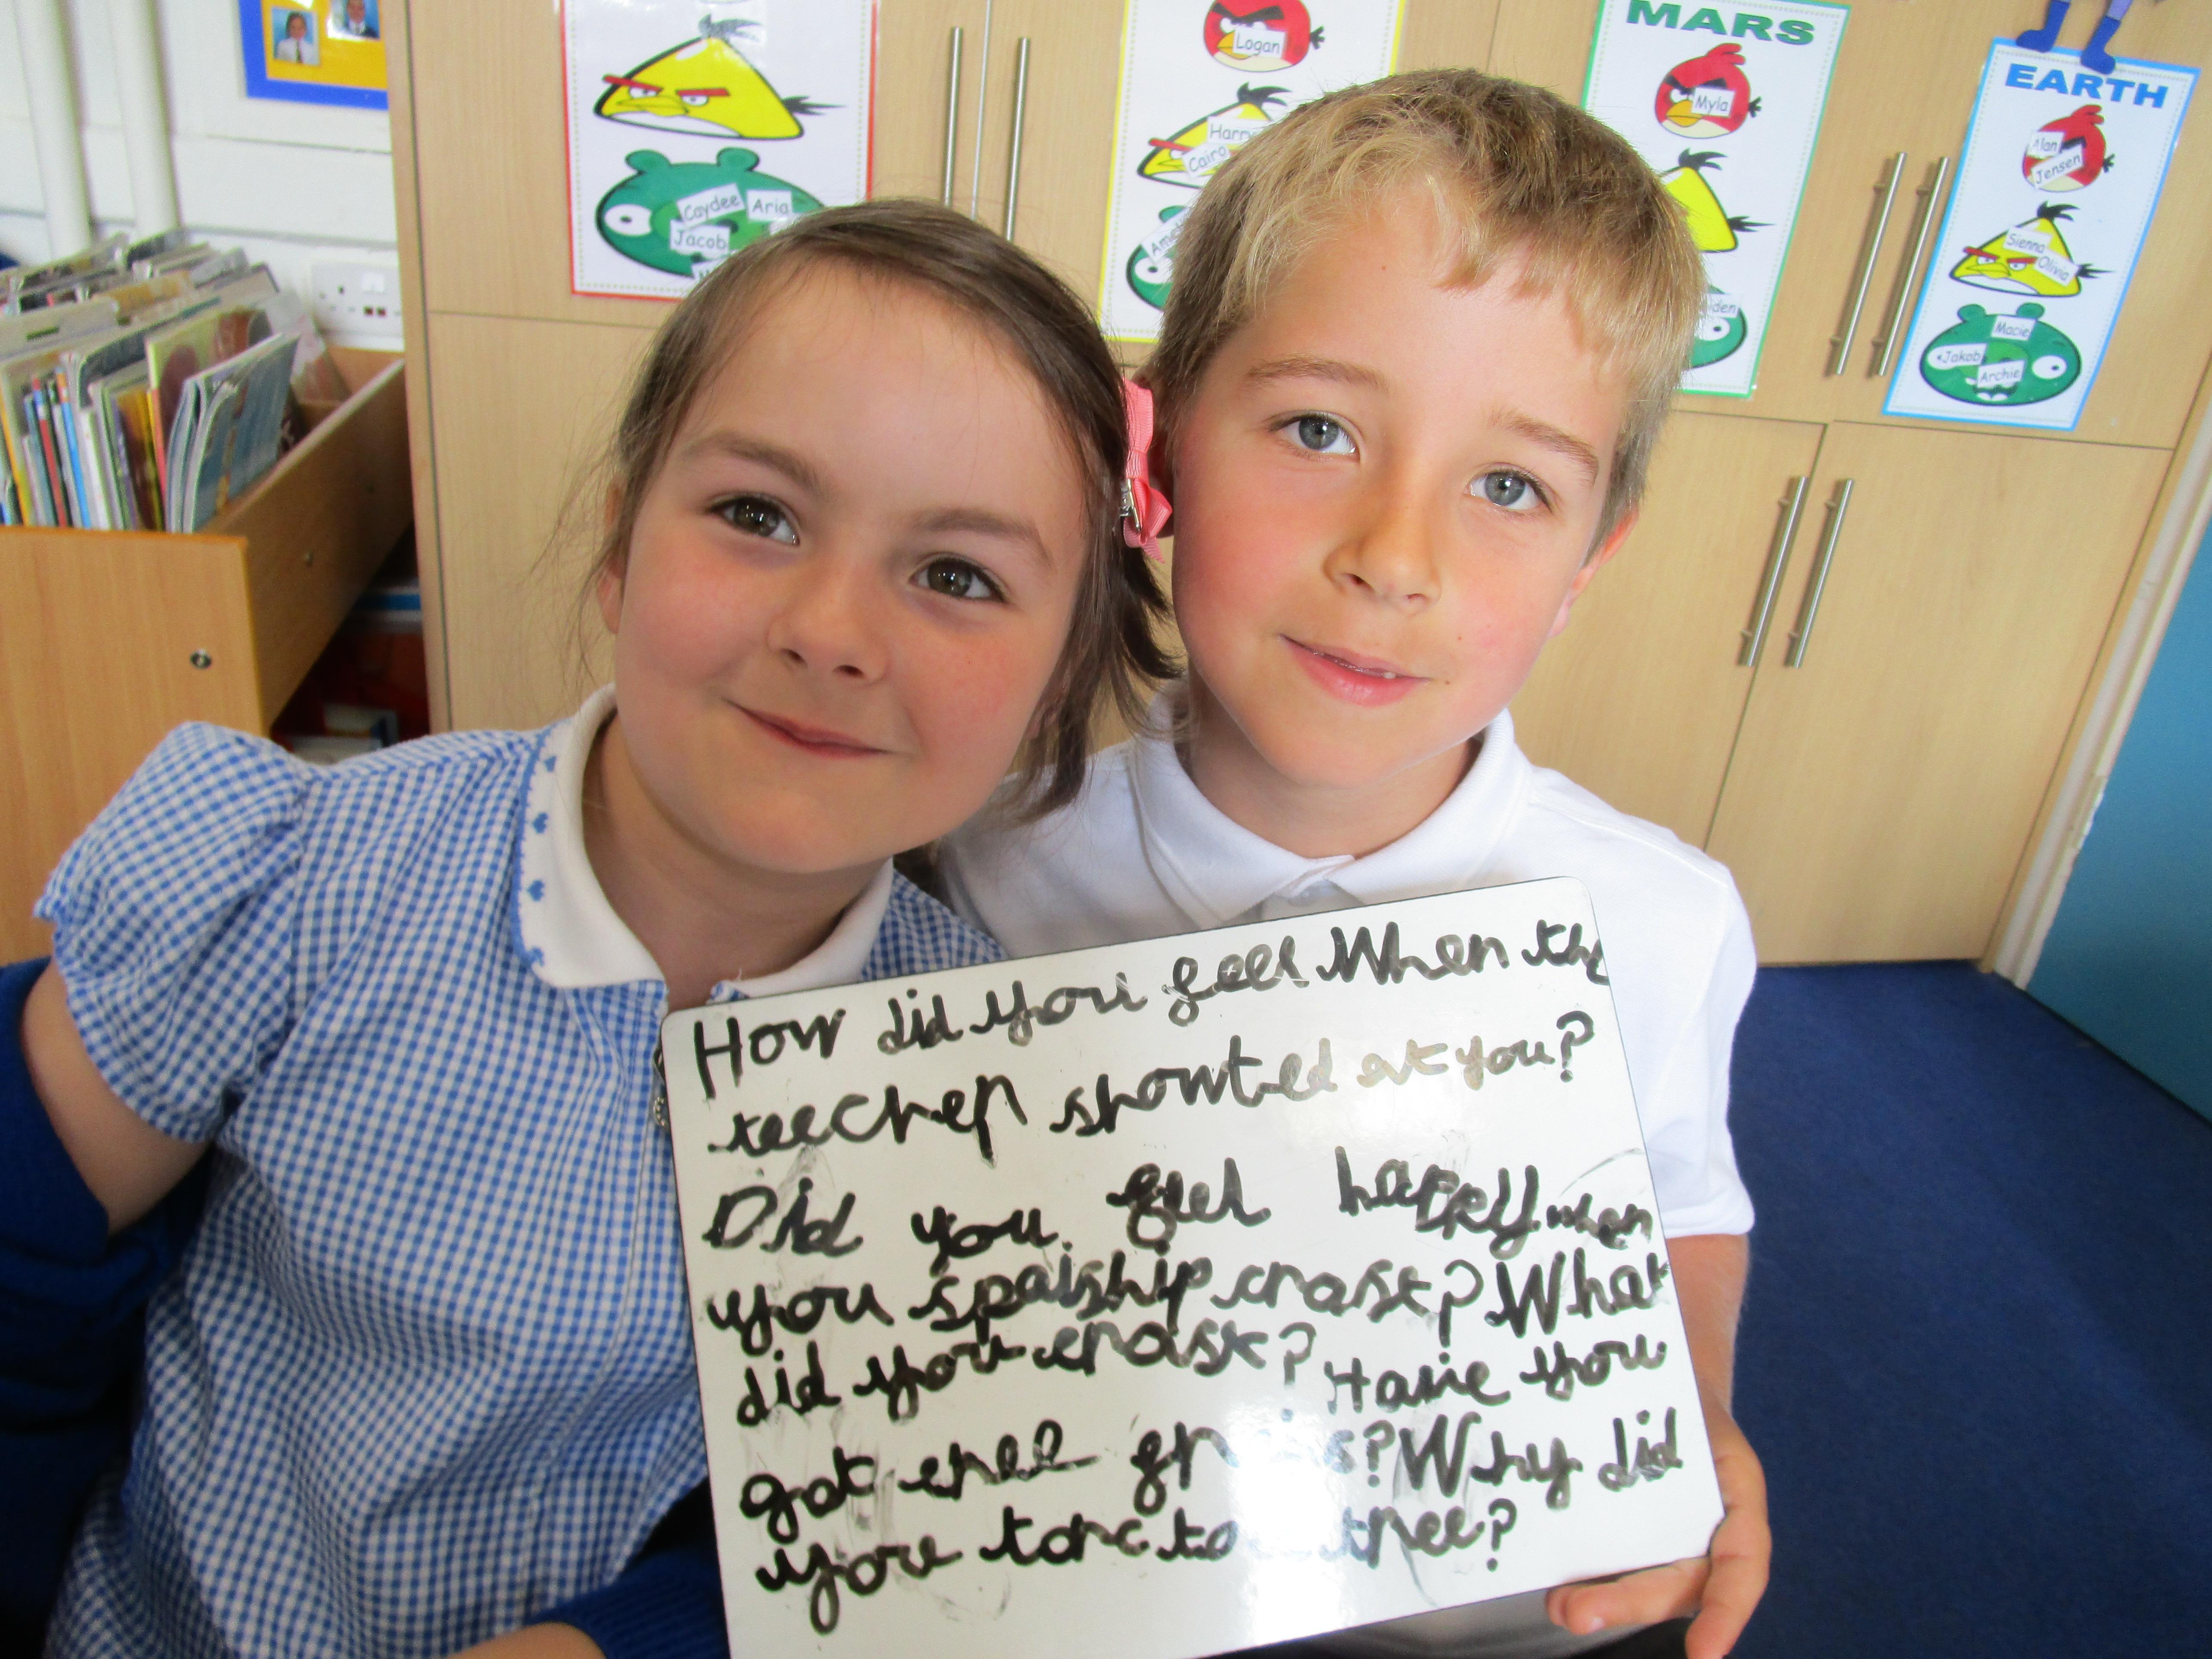 Logan
Harry
Cairo
MARS
Myla
EARTH
Alan
Jensen
Sienna
Olivia
Macie
Jakob
Archie
Caydee Aria
Jacob
How did you feel When the
teecher showted at you?
Did you feel happy when
you spaiship crash? What
did you crash?
Have you
got enee? Why did
you to tree?